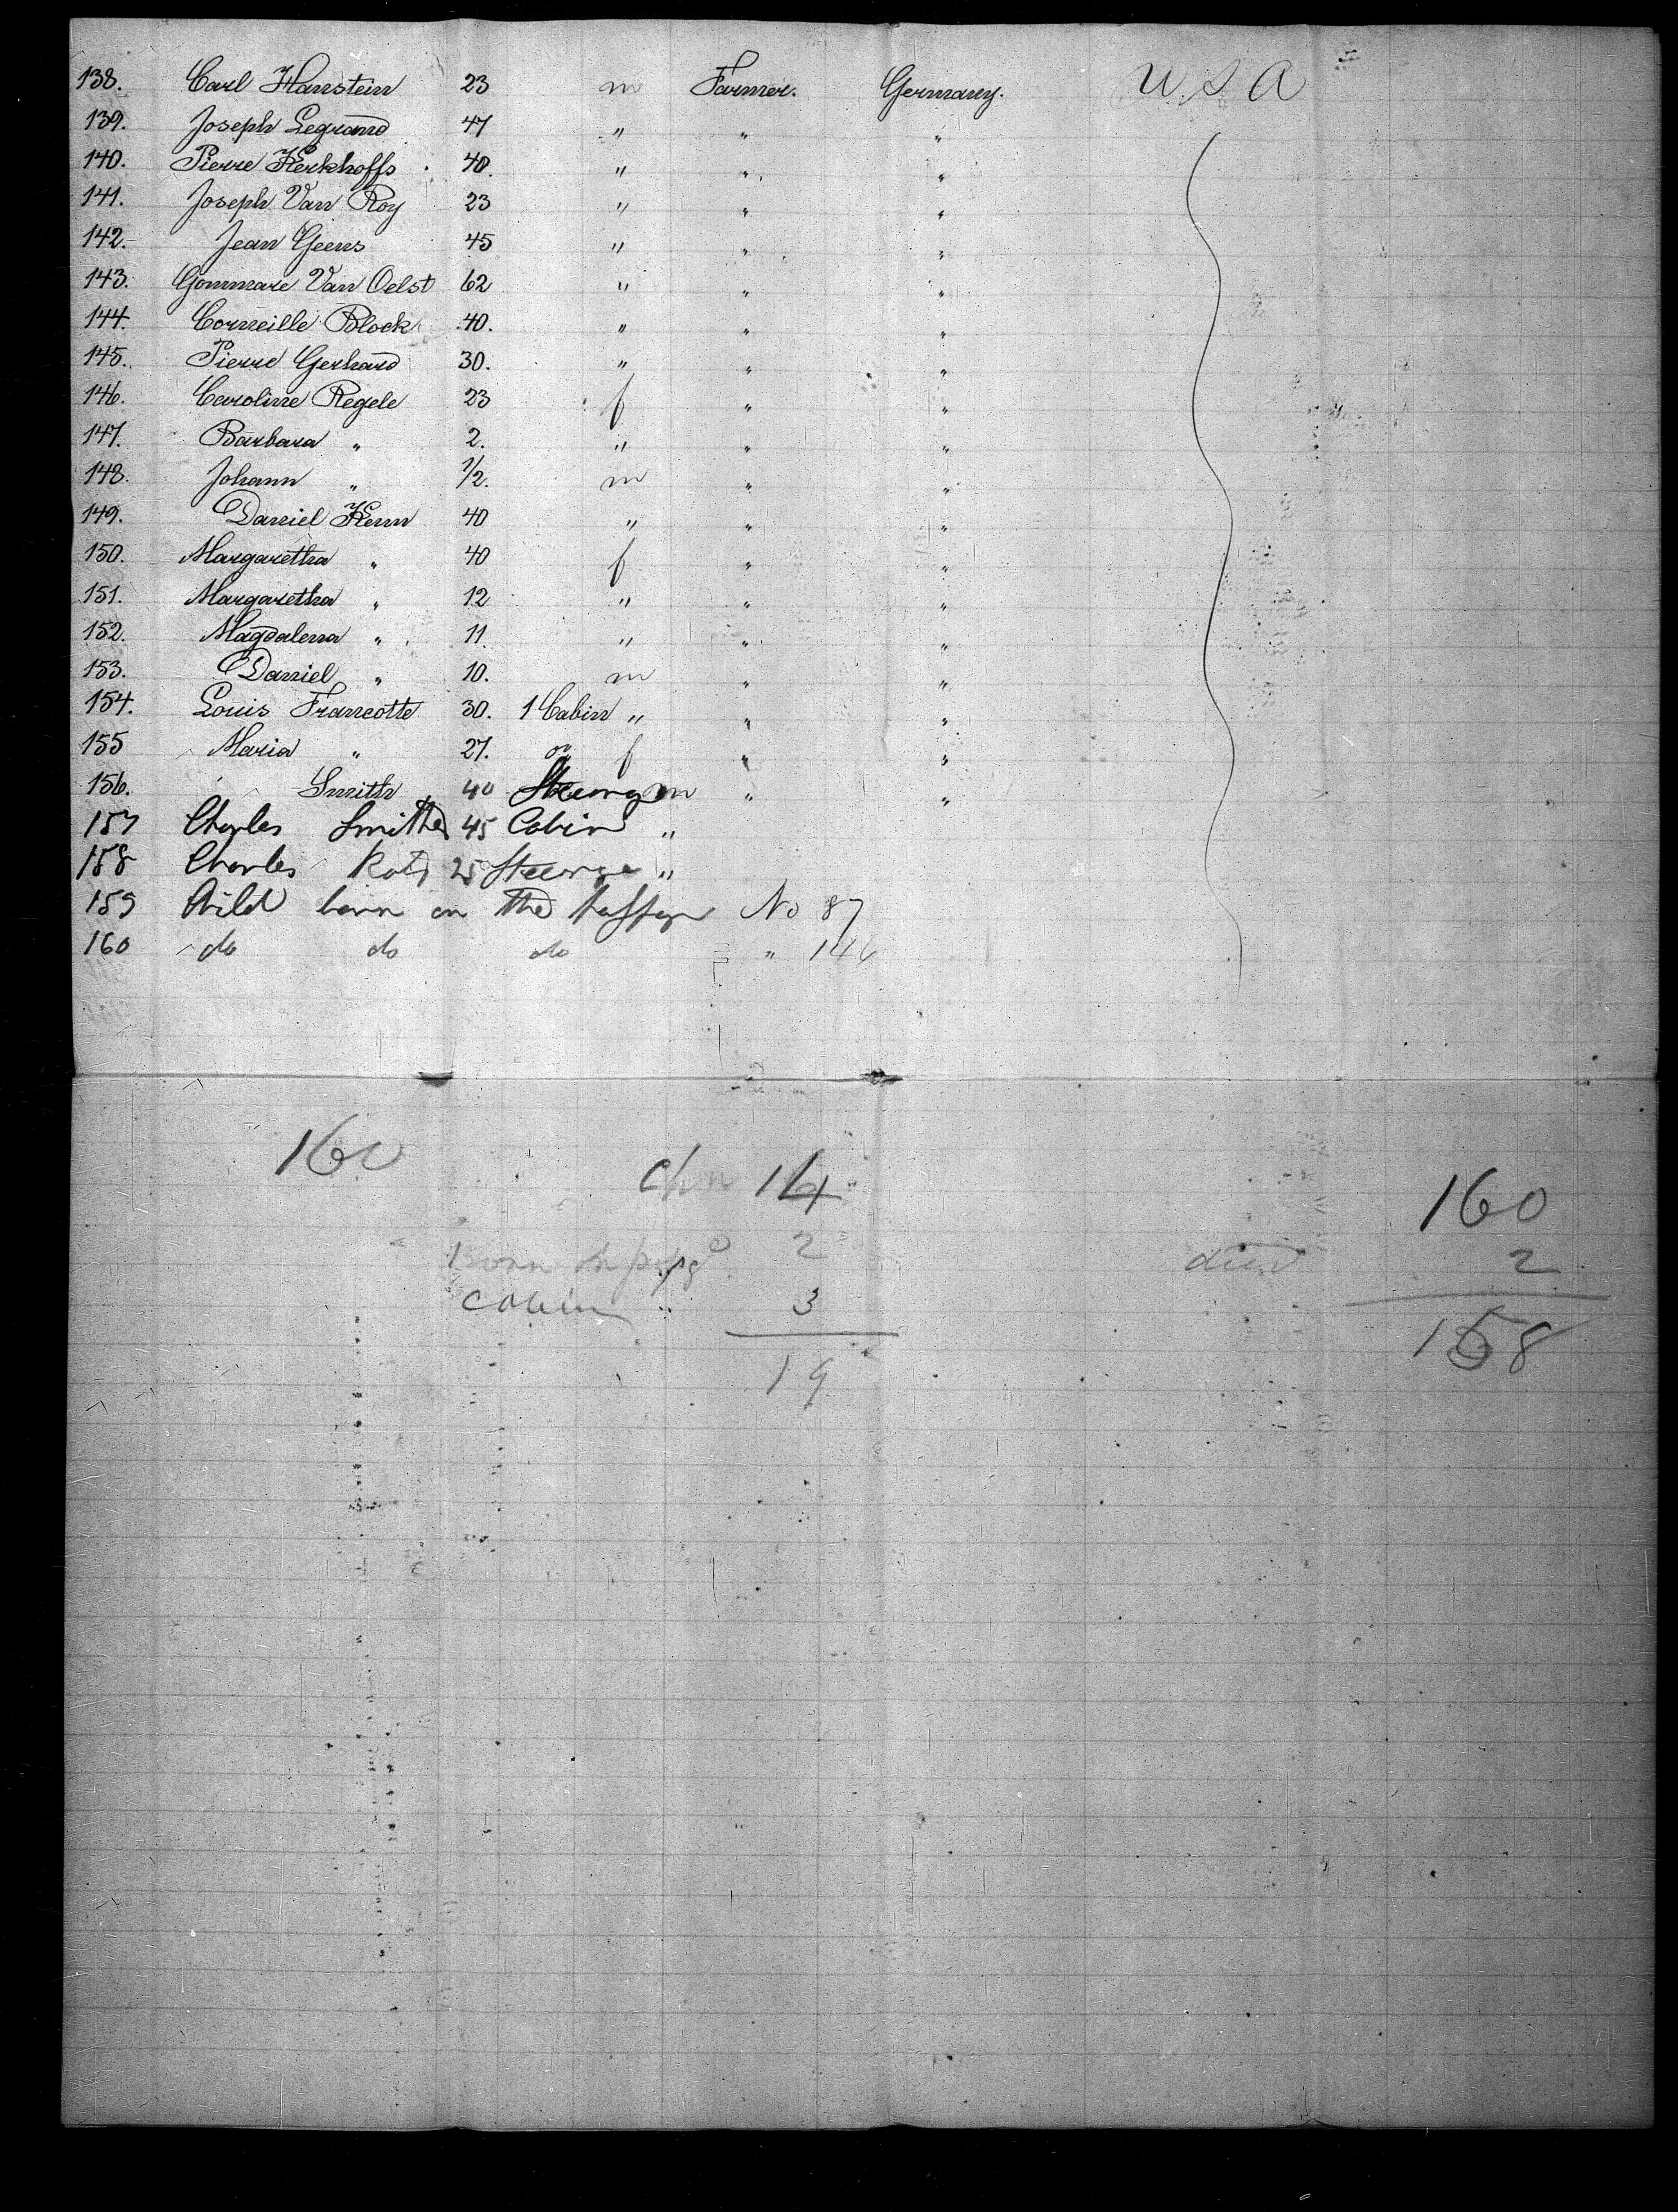 138. Carl Hanstein 23 m Farmer. Germany. U S A
139. Joseph Legrand 47 " " "
140. Pierre Kerkhoffs 40. " " "
141. Joseph Van Roy 23 " " "
142. Jean Geens 45 " " "
143. Gommare Van Oelst 62 " " "
144. Corneille Block 40. " " "
145. Pierre Gerhard 30. " " "
146. Caroline Regele 23 f " "
147. Barbara " 2. " " "
148. Johann " 1/2. m " "
149. Daniel Kern 40 " " "
150. Margaretha " 40 f " "
151. Margaretha " 12 " " "
152. Magdalena " 11. " " "
153. Daniel " 10. m " "
154. Louis Francotte 30. 1 Cabin " " "
155 Maria " 27. " f " "
156. Smith 40 Steerage m " "
157 Charles Smith 45 Cabin "
158 Charles 25 Steerage "
159 Child born on the passage No 87
160 do do do " 146
160
Chn 14
160
Born on psg 2
died 2
Cabin " 3
158
19